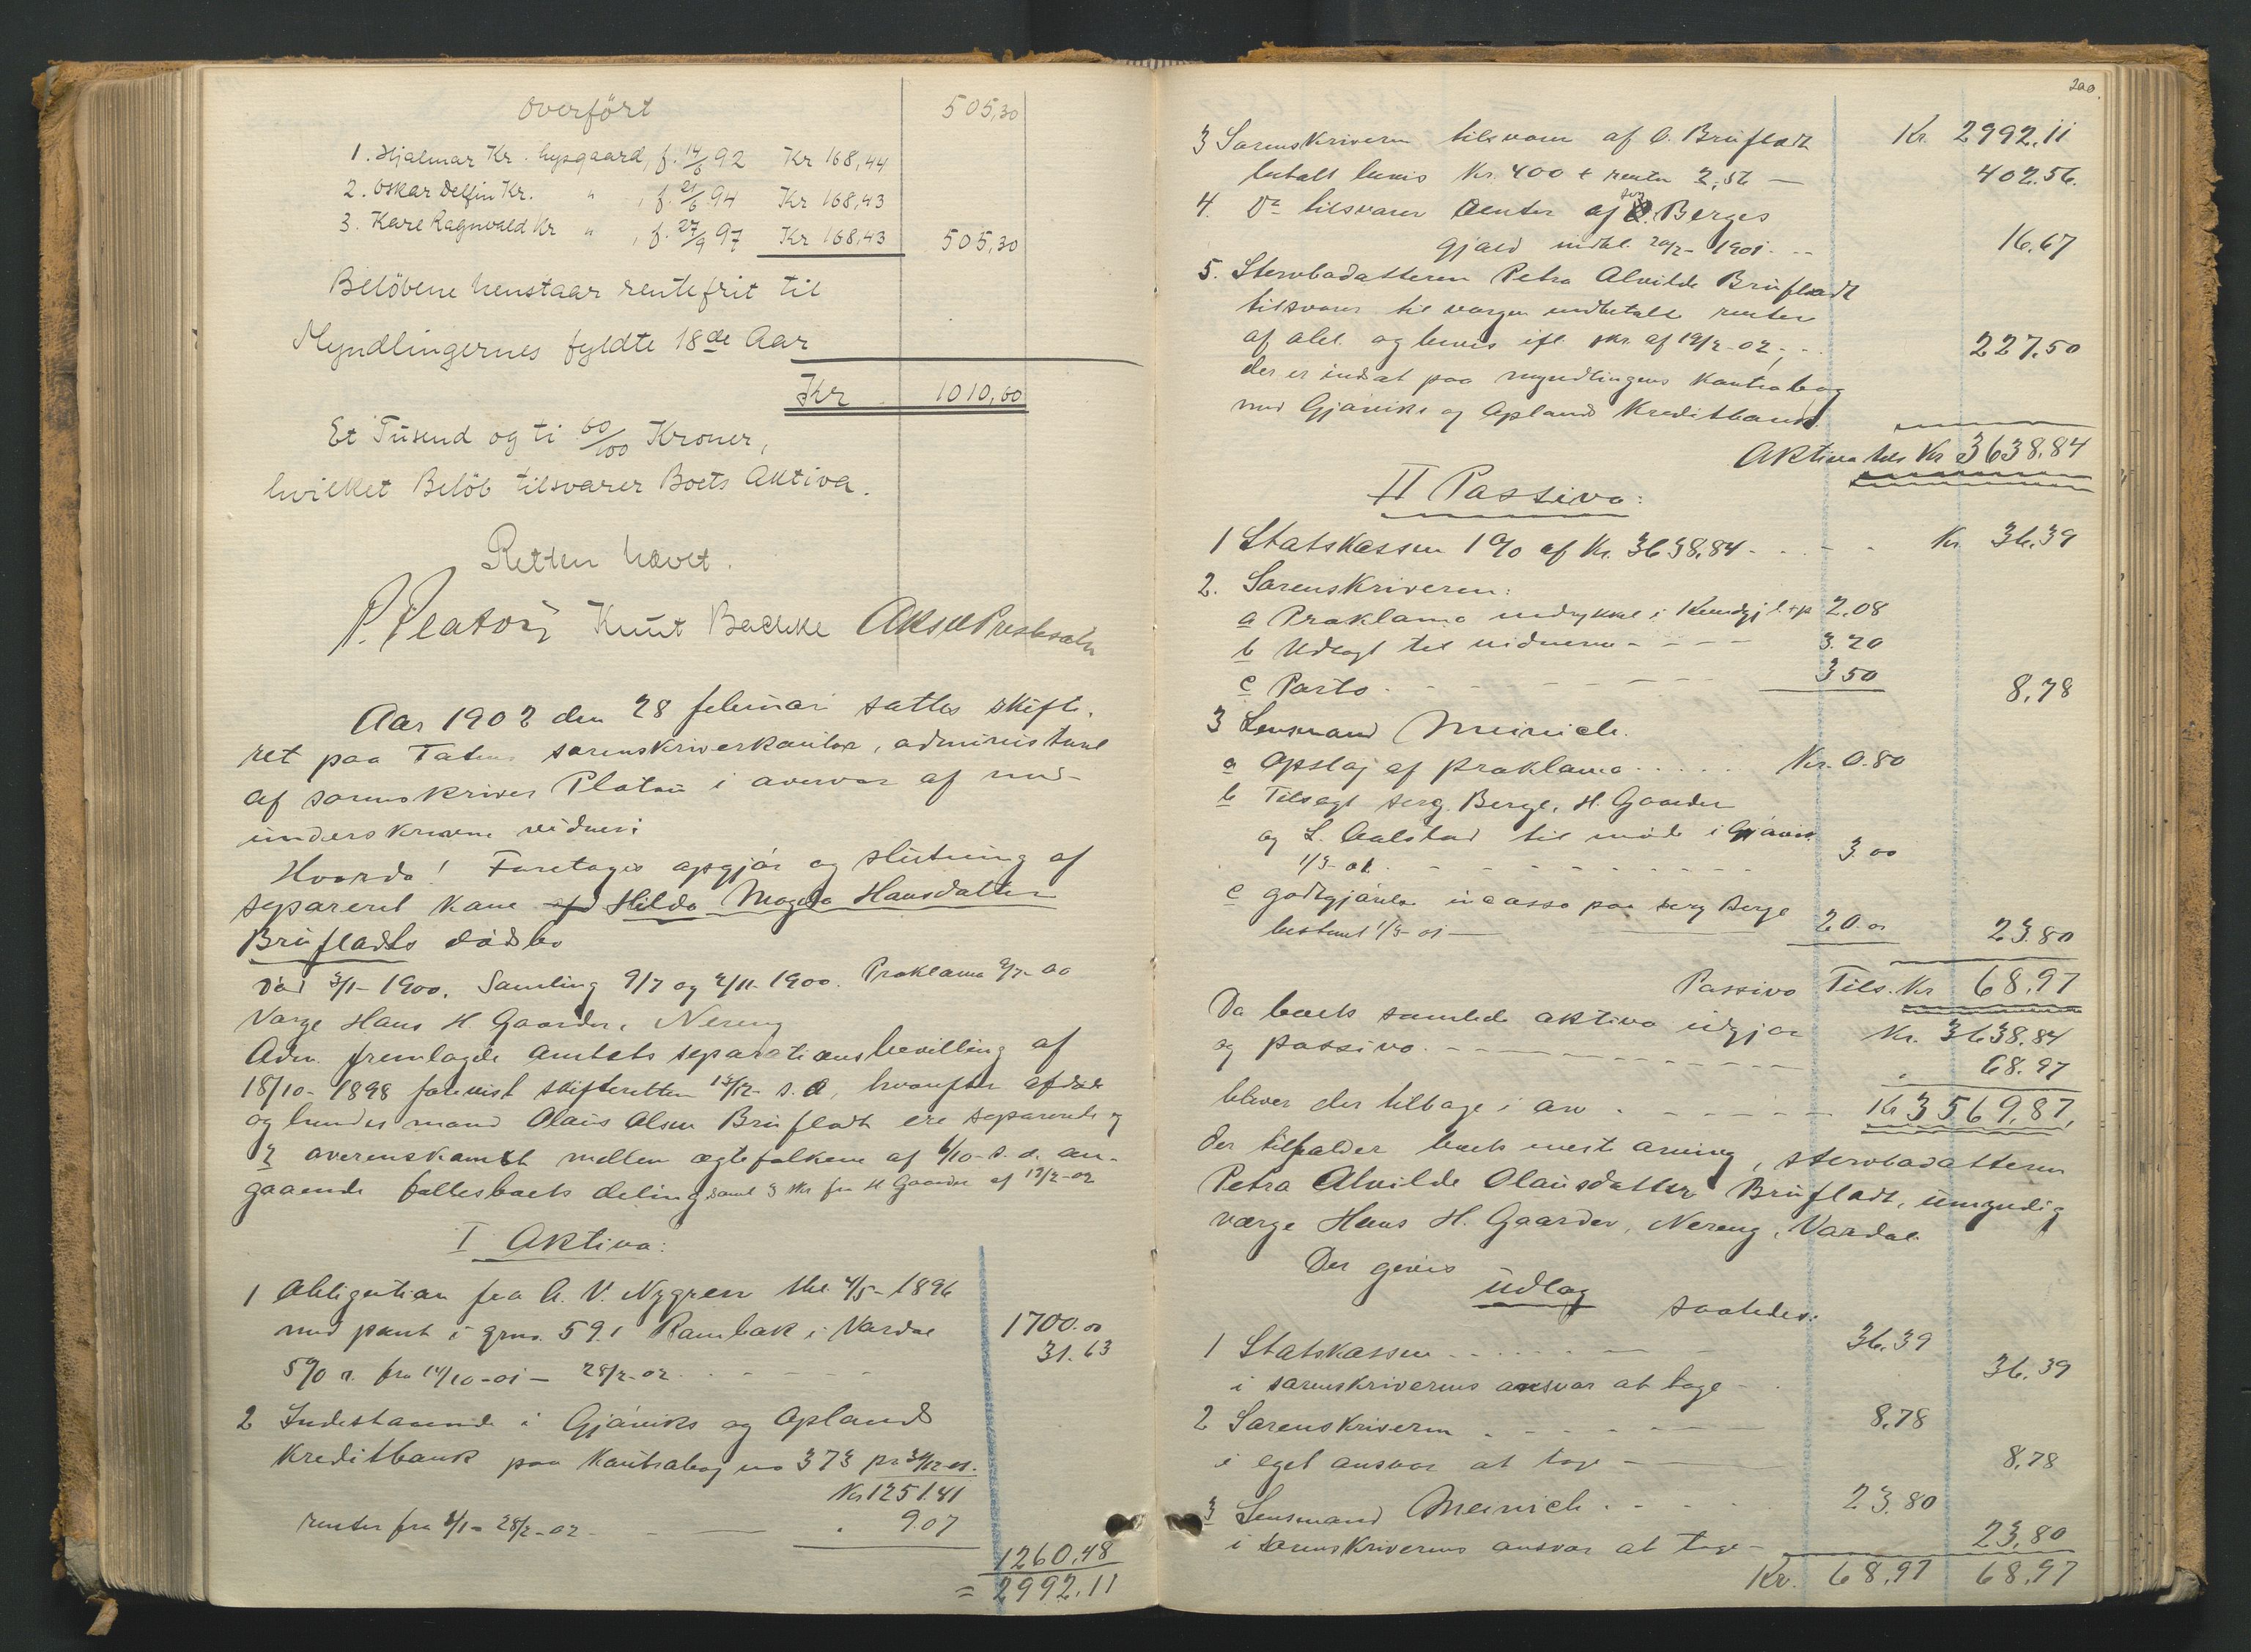 Overført 505,30
1. Hjalmar Kr. Lysgaard, f. 14/6 92 Kr 168,44
2. Oskar Delfin Kr. " , f. 21/6 94 Kr 168,43
3. Karl Ragnvald Kr " , f. 27/9 97 Kr 168,43 505,30
Beløbene henstaar rentefrit til
Myndlingernes fyldte 18de Aar
Kr 1010,60
Et Tusend og ti 60/100 Kroner,
hvilket Beløb tilsvarer Boets Aktiva.
Retten hævet.
P. Platou Knut Bachke Aksel Prestesæter
Aar 1902 den 28 februar sattes skifte-
ret paa Totens sorenskriverkontor, administreret
af sorenskriver Platou i overvær af med-
underskrevne vidner:
Hvorda! Foretoges opgjør og slutning af
separeret kone Hilda Magda Hansdatter
Brufladts dødsbo
Død 3/1-1900. Samling 9/7 og 2/11-1900. Proklama 9/7-00
Værge Hans H Gaarder, Nereng
Adm. fremlagde amtets separationsbevilling af
18/10-1898 forevist skifteretten 13/12 s. a, hvorefter afdøde
og hendes mand Olaus Olsen Brufladt ere separerede og
2 overenskomst mellem ægtefolkene af 6/10-s. a. an-
gaaende fællesboets deling samt 3 skr fra H Gaarder af 19/2-02
I Aktiva:
1 Obligation fra A. V. Nygren thl. 4/5-1896
med pant i grno. 59.1 Rambæk i Vardal 1700.00
5% r. fra 14/10-01 - 28/2-02 31.63
2 Indestaaende i Gjøviks og Oplands
Kreditbank paa Kontrabog no 373 pr 31/12-01.
Kr 1251.41
renter fra 1/1-28/2-02 9.07
1260.48
= 2992.11
200.
Kr. 2992.11
3 Sorenskriveren tilsvarer af O. Brufladt
betalt bevis Kr. 400 + renter 2,56 402.56.
4. Do tilsvarer renter af serg. Berges
gjæld indtil 20/2-1901. 16.67
5. Stervbodatteren Petra Alvilde Brufladt
tilsvarer til værgen indbetalte renter
af obl. og bevis ifl. skr. af 19/2-02, 227.50
der er indsat paa myndlingens Kontrabog
med Gjøviks og Oplands Kreditbank
Aktiva tils Kr 3638.84
II Passiva:
1 Statskassen 1% af Kr. 3638.84 Kr. 36.39
2. Sorenskriveren:
a Proklama indrykket i Kundgj.t. + p 2.08
b Udlagt til vidnerne 3.20
c Porto 3 50 8.78
3 Lensmand Meinich.
a Opslag af proklama Kr. 0.80
b Tilsagt serg. Berge, H. Gaarder
og L. Aalstad til møde i Gjøvik
1/3-01. 3.00
c godtgjørelse incasso paa serg Berge
bestemt 1/3-01 20.00 23.80
Passiva Tils. Kr 68.97
Da boets samlede aktiva udgjør Kr. 3638.84
og passiva 68.97
bliver der tilbage i arv Kr 3569,87,
der tilfalder boets eneste arving, stervbodatteren
Petra Alvilde Olausdatter Brufladt, umyndig
værge Hans H. Gaarder, Nereng, Vardal.
Der gives
Udlæg saaledes:
1 Statskassen 36.39
i sorenskriverens ansvar at tage 36.39
2 Sorenskriveren 8.78
i eget ansvar at tage 8.78
3 Lensmand Meinich 23.80
i sorenskriverens ansvar at tage 23,80
Kr. 68.97 68.97